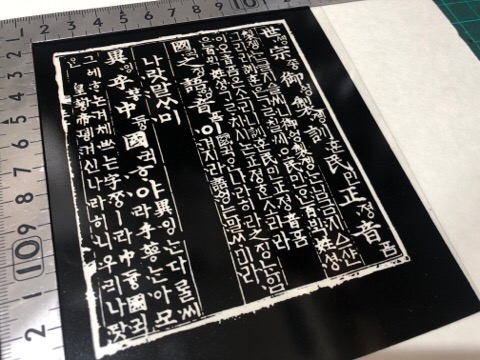 世솅宗종御엉製졩訓훈民민正졍音흠
製졩는글지ᅀᅳᆯ씨니御엉製졩는님금지ᅀᅳ샨
그리라訓훈은ᄀᆞᄅᆞ칠씨오民민은百ᄇᆡᆨ姓셩
이오音흠은소리니訓훈民민正졍音흠
은百ᄇᆡᆨ姓셩ᄀᆞᄅᆞ치시논正졍ᄒᆞᆫ소리라
國귁之징語엉音흠이
國귁은나라히라之징는입
겨지라語엉는말ᄊᆞ미라
나랏말ᄊᆞ미
異잉乎ᅘᅩᆼ中듕國귁ᄒᆞ야
異잉는다ᄅᆞᆯ씨
라乎ᅘᅩᆼ는아모
그ᅌᅦᄒᆞ논겨체ᄡᅳ는字ᄍᆞᆼㅣ라中듕國귁
ᄋᆞᆫ皇ᅘᅪᆼ帝뎽겨신나라히니우리나랏